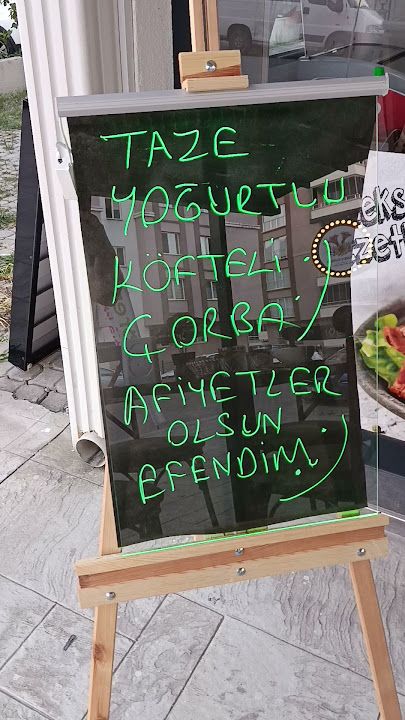 TAZE
YOĞURTLU
KÖFTELİ :)
ÇORBA
AFİYETLER
OLSUN
EFENDİM :)